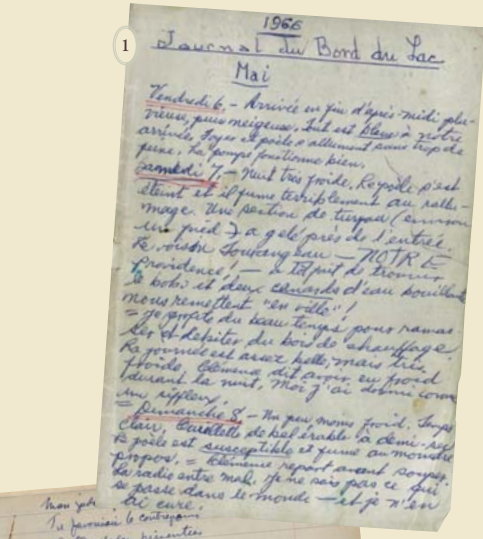 1
1966
Journal du Bord du Lac
Mai
Vendredi 6, – Arrivée en fin d'après-midi plu-
vieuse, puis neigeuse. Tout est bleu à notre
arrivée. Foyer et poêle s'allument sans trop de
peine. La pompe fonctionne bien.
Samedi 7, – Nuit très froide. Le poêle s'est
éteint et il fume terriblement au rallu-
mage. Une section de (environ
un pied) a gelé près de l'entrée.
Le voisin – NOTRE
Providence! – a tôt fait de trouver
le bobo et deux d'eau bouillante
nous remettent "en ville"!
= Je profite du beau temps pour ramas-
ser et débiter du bois de chauffage.
La journée est assez belle, mais très
froide. Clémence dit avoir eu froid
durant la nuit, moi j'ai dormi comme
un siffleux.
= Dimanche 8, – Un peu moins froid. Temps
clair. de bel érable à demi-sec
Le poêle est susceptible et fume au moindre
propos. = Clémence repart avant souper.
La radio entre mal. Je ne sais pas ce qui
se passe dans le monde – et je n'en
ai cure.
mon
Tu